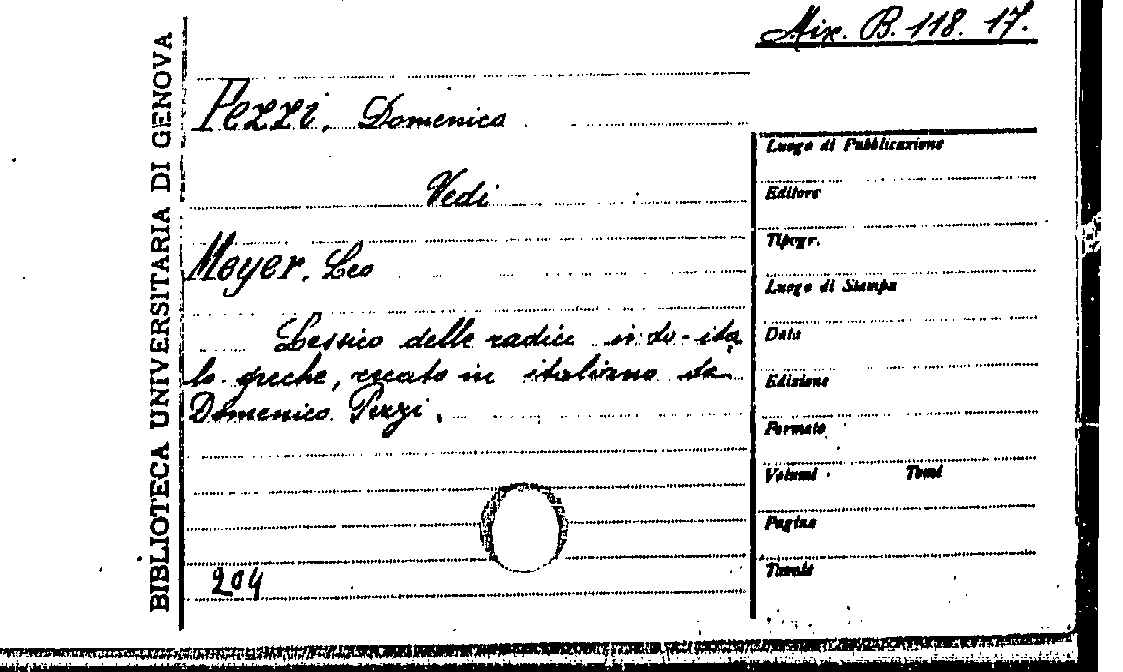 BIBLIOTECA UNIVERSITARIA DI GENOVA
Mix. B. 118. 17.
Pezzi, Domenico
Vedi
Meyer, Leo
Lessico delle radici indo-ita
lo greche, recato in italiano da
Domenico Pezzi.
204
Luogo di Pubblicazione
Editore
Tipogr.
Luogo di Stampa
Data
Edizione
Formato
Volumi Tomi
Pagine
Tavole